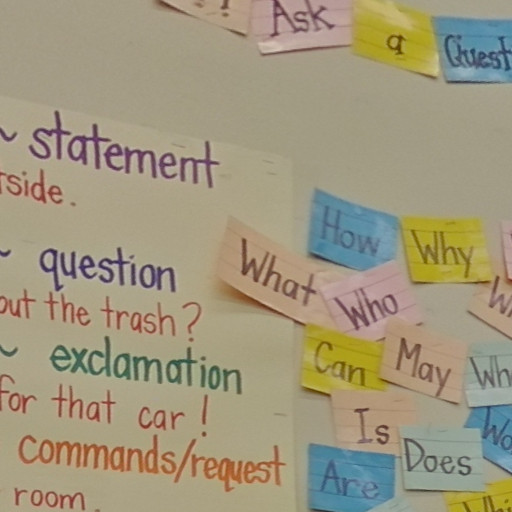 Ask a Quest
~ statement
rside.
~ question
out the trash?
~ exclamation
for that car!
commands/request
room.
How Why
What Who
Can May Wh
Is Does Wo
Are